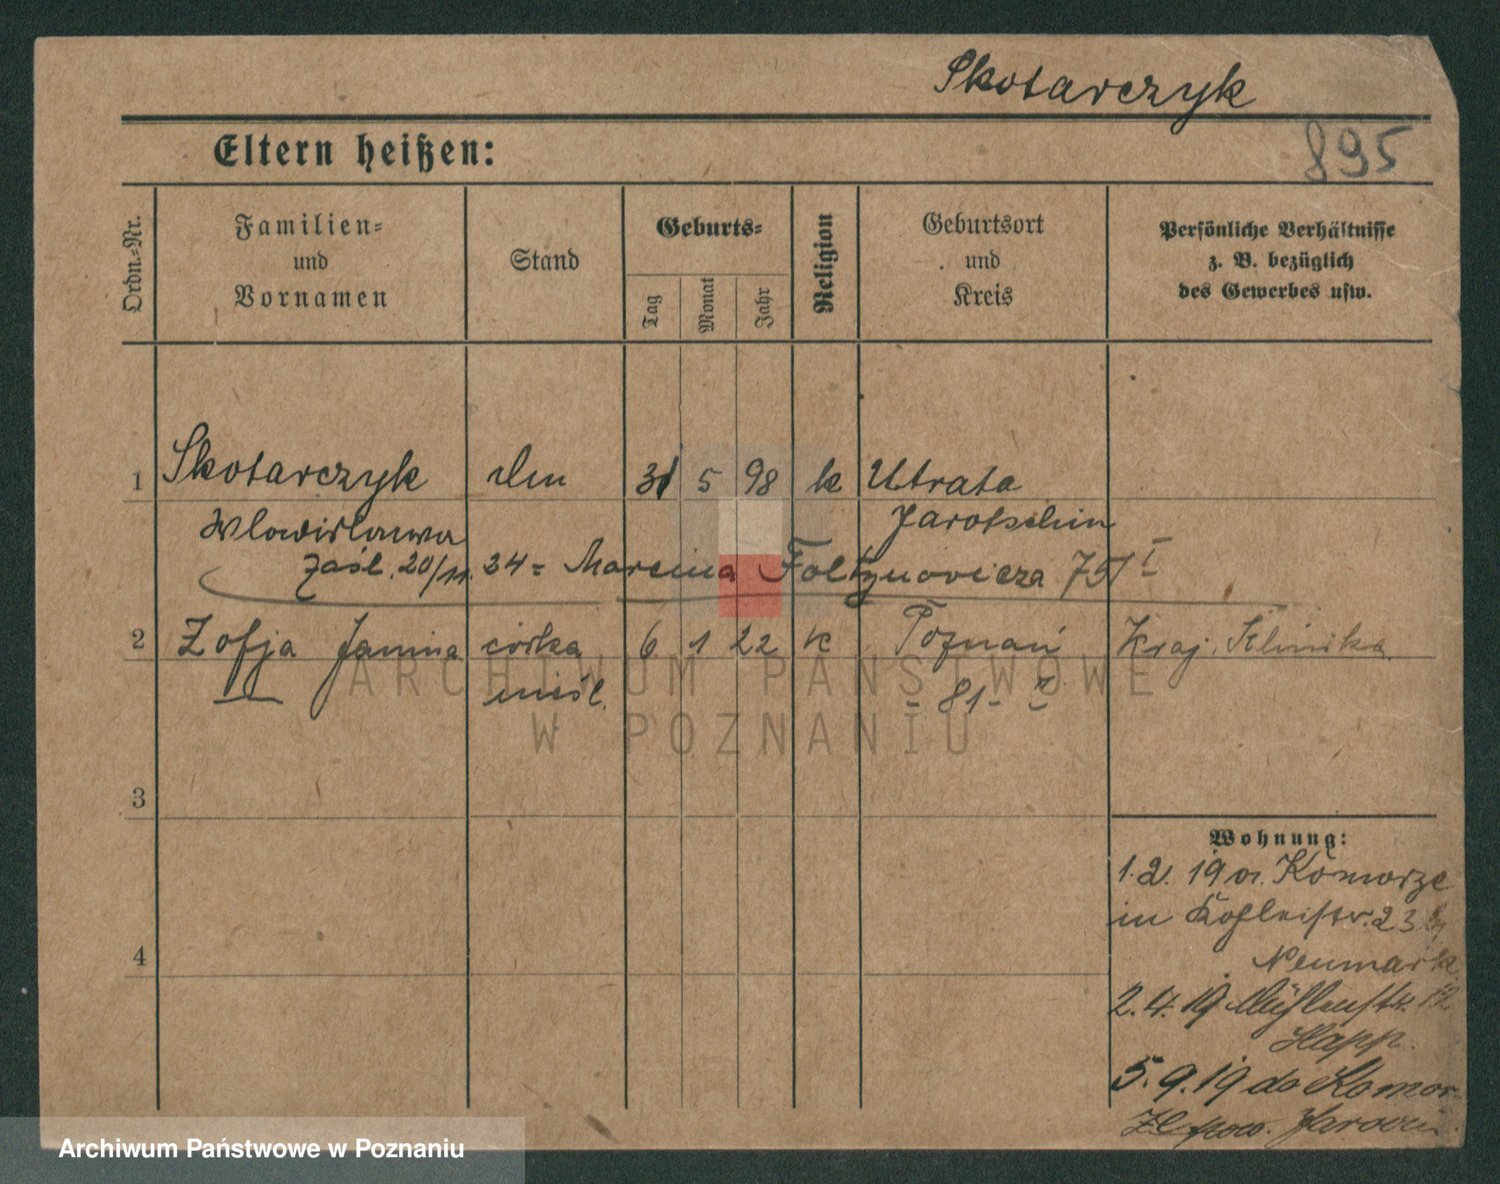 Skotarczyk
895
Eltern heißen:
Ordn.-Nr.
Familien-
und
Vornamen
Stand
Geburts-
Tag
Monat
Jahr
Religion
Geburtsort
und
Kreis
Persönliche Verhältnisse
z. B. bezüglich
des Gewerbes usw.
1 Skotarczyk 31 5 98 k Utrata
Jarotschin
zaśl. 20/11. 24 = Marcina Foltynowicza 75 I
2 Zofja Janina córka 6 1 22 k Poznań Kraj. Klinika
nieśl. - 81 -
3
4
Wohnung:
1.2. 19 Komorze
in 23
Neumark
2.4.19 Mühlenstr. 12
Happ.
5.9.19 do Komor-
ze pow. Jarocin.
ARCHIWUM PAŃSTWOWE
W POZNANIU
Archiwum Państwowe w Poznaniu